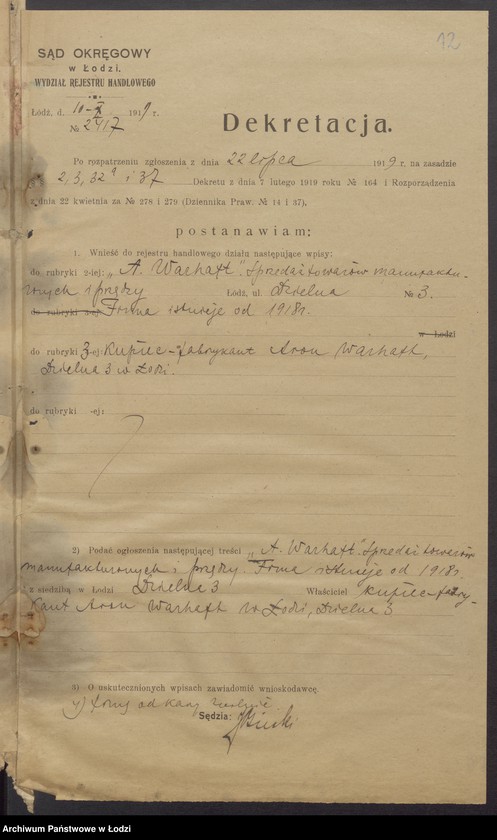 12
SĄD OKRĘGOWY
w Łodzi.
WYDZIAŁ REJESTRU HANDLOWEGO
Łódź, d. 10-X 1919 r.
№ 2417
Dekretacja.
Po rozpatrzeniu zgłoszenia z dnia 22 lipca 1919 r. na zasadzie
2, 3, 32 i 37 Dekretu z dnia 7 lutego 1919 roku № 164 i Rozporządzenia
z dnia 22 kwietnia za № 278 i 279 (Dziennika Praw. № 14 i 37),
postanawiam:
1. Wnieść do rejestru handlowego działu następujące wpisy:
do rubryki 2-iej: „A. Warhaft". Sprzedaż towarów manufaktu-
rowych i przędzy Łódź, ul. Dzielna № 3.
do rubryki Firma istnieje od 1918 r.
w Łodzi
do rubryki 3-ej: Kupiec-fabrykant Aron Warhaft,
Dzielna 3 w Łodzi.
do rubryki -ej:
2) Podać ogłoszenia następującej treści „A. Warhaft". Sprzedaż towarów
manufakturowych i przędzy. Firma istnieje od 1918 r.
z siedzibą w Łodzi Dzielna 3 Właściciel kupiec-fabry-
kant Aron Warhaft w Łodzi, Dzielna 3
3) O uskutecznionych wpisach zawiadomić wnioskodawcę.
od kary
Sędzia:
Archiwum Państwowe w Łodzi